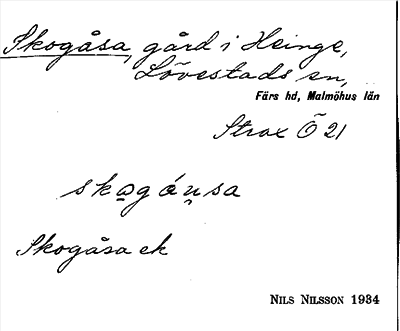 Skogåsa, gård i Heinge,
Lövestads sn,
Färs hd, Malmöhus län
Strax Ö 21
skogáu̯sa
Skogåsa ek
NILS NILSSON 1934